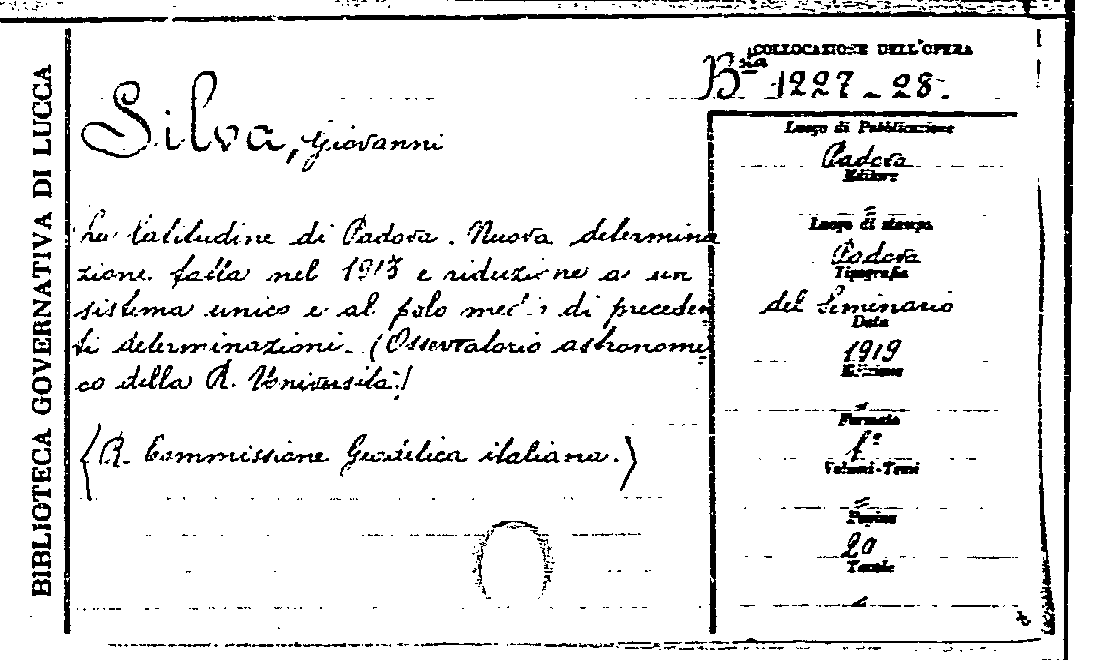 BIBLIOTECA GOVERNATIVA DI LUCCA
COLLOCAZIONE DELL'OPERA
Bsta 1227-28.
Silva, Giovanni
La latitudine di Padova. Nuova determina
zione fatta nel 1913 e riduzione a un
sistema unico e al polo medio di preceden
ti determinazioni. (Osservatorio astronomi
co della R. Università)
(R. Commissione Geodetica italiana.)
Luogo di Pubblicazione
Padova
Editore
=
Luogo di stampa
Padova
Tipografia
del Seminario
Data
1919
Edizione
=
Formato
f.º
Volumi-Tomi
=
Pagine
20
Tavole